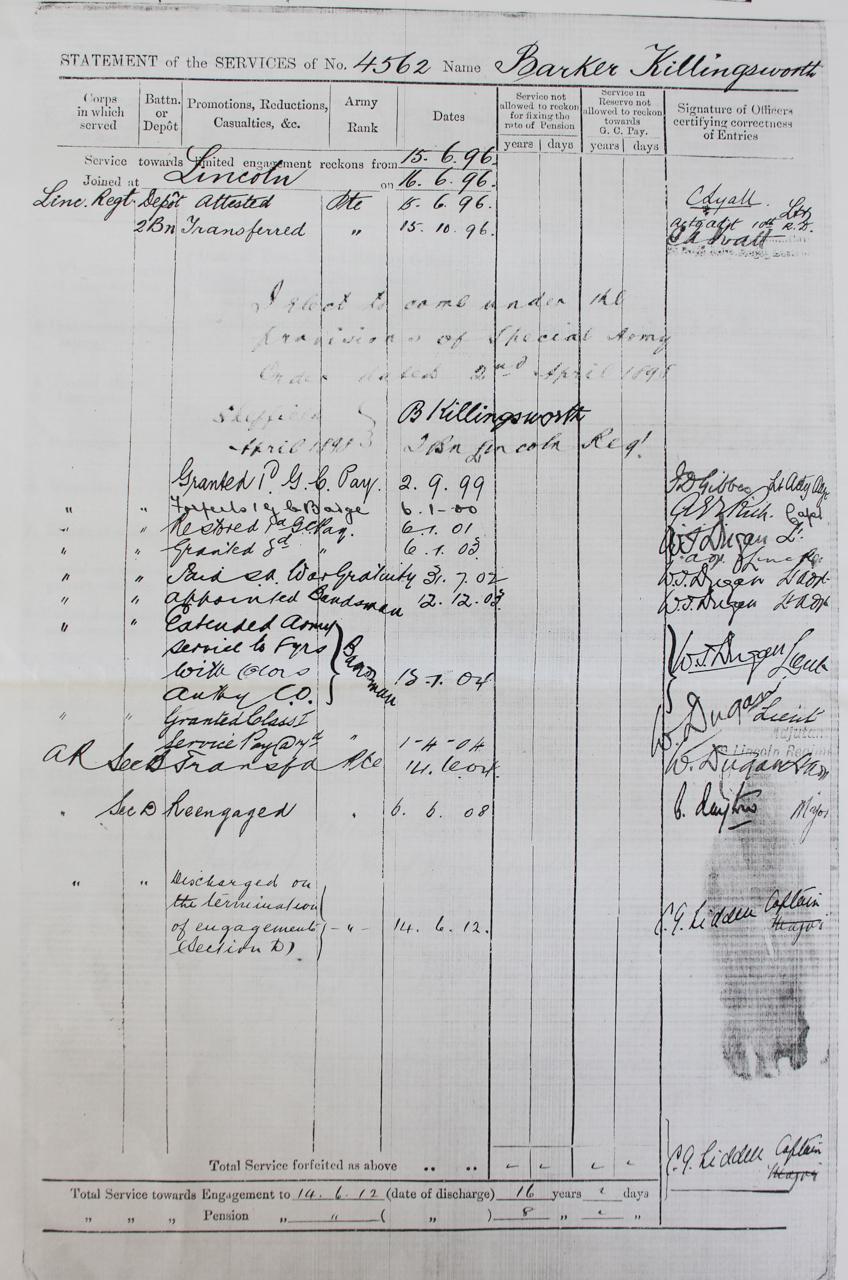 STATEMENT of the SERVICES of No. 4562 Name Barker Killingsworth
Corps in which served
Battn. or Depôt
Promotions, Reductions, Casualties, &c.
Army Rank
Dates
Service not allowed to reckon for fixing the rate of Pension
years days
Service in Reserve not allowed to reckon towards G. C. Pay.
years days
Signature of Officers certifying correctness of Entries
Service towards limited engagement reckons from 15. 6. 96.
Joined at Lincoln on 16. 6. 96.
Linc. Regt Depôt Attested Pte 15. 6. 96. C Lyall. Lt
2 Bn Transferred " 15. 10. 96.
I elect to come under the
provisions of Special Army
Order dated 2nd April 1898
Sheffield } B Killingsworth
April 1898 } 2 Bn Lincoln Regt
Granted 1d G. C. Pay. 2. 9. 99
" " Forfeits 1 G C Badge 6. 1. 00 Capt
" " Restored 1d GC Pay. 6. 1. 01 W T Dugan Lt
" " Granted 2d " 6. 1. 03
" " Paid S.A. War Gratuity 31. 7. 02 W.T. Dugan Lt Adjt
" " appointed Bandsman 12. 12. 03 W.T. Dugan Lt Adjt
" " Extended Army
Service to 8 yrs
with Colors } Bandsman 13. 1. 04 W.T. Dugan Lieut
Authy C.O.
" " Granted Class I
Service Pay @ " 1-4-04 W. Dugan Lieut
Adjutant
Lincoln Regim
AR Sec B Transfd Pte 14. 6. 04. W. Dugan Lt Adjt
" Sec D Reengaged " 6. 6. 08 Major
" " Discharged on
the termination
of engagement } - " - 14. 6. 12. C. G. Liddell Captain Major
(Section D).
Total Service forfeited as above .. .. " " " " C. G. Liddell Captain Major
Total Service towards Engagement to 14. 6. 12 (date of discharge) 16 years " days
" " " Pension " " ( " ) 8 " " "